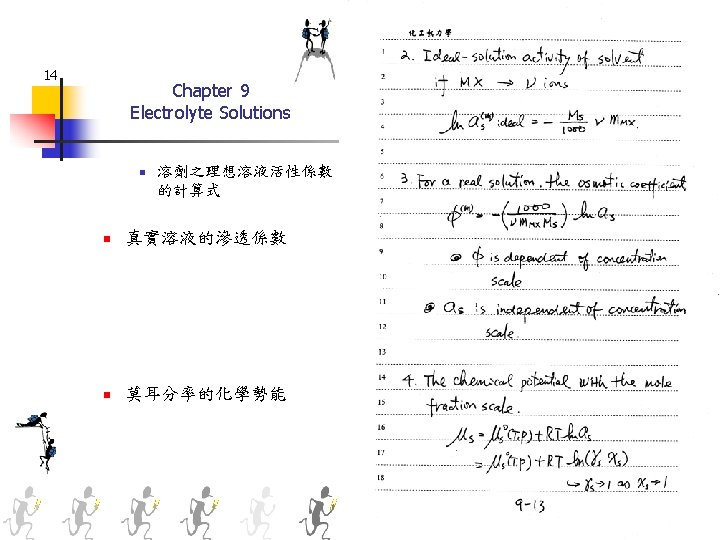 14
Chapter 9
Electrolyte Solutions
溶劑之理想溶液活性係數
的計算式
真實溶液的滲透係數
莫耳分率的化學勢能
化工熱力學
1
2
3
4
5
6
7
8
9
10
11
12
13
14
15
16
17
18
2. Ideal-solution activity of solvent
if MX → ν ions
ln as^(m) ideal = - Ms/1000 ν mMX
3. For a real solution, the osmotic coefficient
ϕ^(m) = -(1000/νmMXMs) ln as
ϕ is dependent of concentration
scale
as is independent of concentration
scale.
4. The chemical potential with the mole
fraction scale.
μs = μs°(T,P) + RT ln as
= μs°(T,P) + RT ln(γs xs)
↳ γs→1 as xs→1
9-13